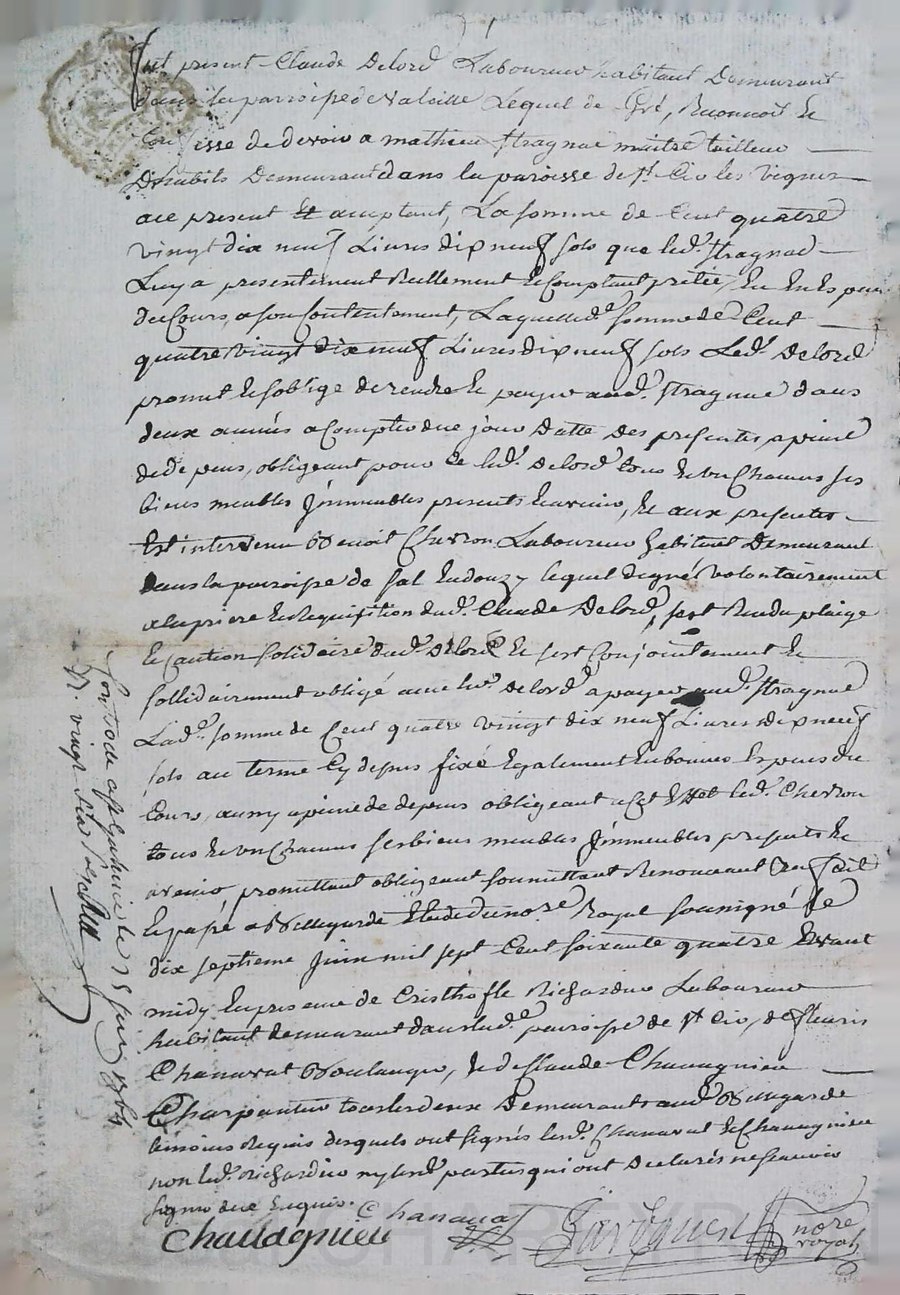 fut present Claude Delord Laboureur habitant Demeurant
dans la parroisse de Valeille Lequel de Gré, Reconnoit et
Confesse de devoir a mathieu Stragnat maitre tailleur
D'habits Demeurant dans la paroisse de st. Cir les vignes
ace present Et acceptant, La somme de Cent quatre
vingt dix neuf Livres dix neuf sols que led. Stragnat
Luy a presentement Reellement et Comptant prêtée, En Espe
de Cours, a son Contentement, Laquelle d. somme de Cent
quatre vingt dix neuf Livres dix neuf sols Led. Delord
promet et s'oblige de rendre et payer aud. Stragnat dans
deux années a Compter du jour Datte Des presentes, a peine
de depens, obligeant pour Ce led. Delord tous et un Chacuns ses
biens meubles Jmmeubles presents et avenir, Et aux presentes
Est intervenu Benoit Cherron Laboureur habitant Demeurant
Dans la paroisse de Sal En donzy lequel de gré volontairement
a la priere et Requisition dud. Claude Delord, s'est Rendu pleige
et Caution solidaire dud. Delord et s'est Conjointement et
sollidairement obligé avec led. Delord a payer aud. Stragnat
Lad. somme de Cent quatre vingt dix neuf Livres dix neuf
sols au terme Cy depus fixé Egalement En bonnes Especes du
Cours, aussy a peine de depens obligeant a Cet Effet led. Cherron
tous et un Chacuns ses biens meubles Jmmeubles presents et
avenir, promettant obligeant soumettant Renoncent &c fait
et passé a Bellegarde Etude du nore. Royal soussigné Le
dix septieme Juin mil sept Cent soixante quatre avant
midy En presence de Cristhofle Richardier Laboureur
habitant demeurant dans lad. parroisse de st. Cir, de fleuris
Chanavat Boulanger, et de Claude Chavagnieu
Charpentier tous les deux Demeurants aud. Bellegarde
temoins Requis desquels ont signés lesd. Chanavat et Chavagnieu
non led. Richardier ny lesd. parties qui ont Declarés ne sçavoir
signer de ce Enquis. Chanavat
Chavagnieu
nore
royal
Controlé a Bellegarde le 25 Juin 1764
R. vingt six sols